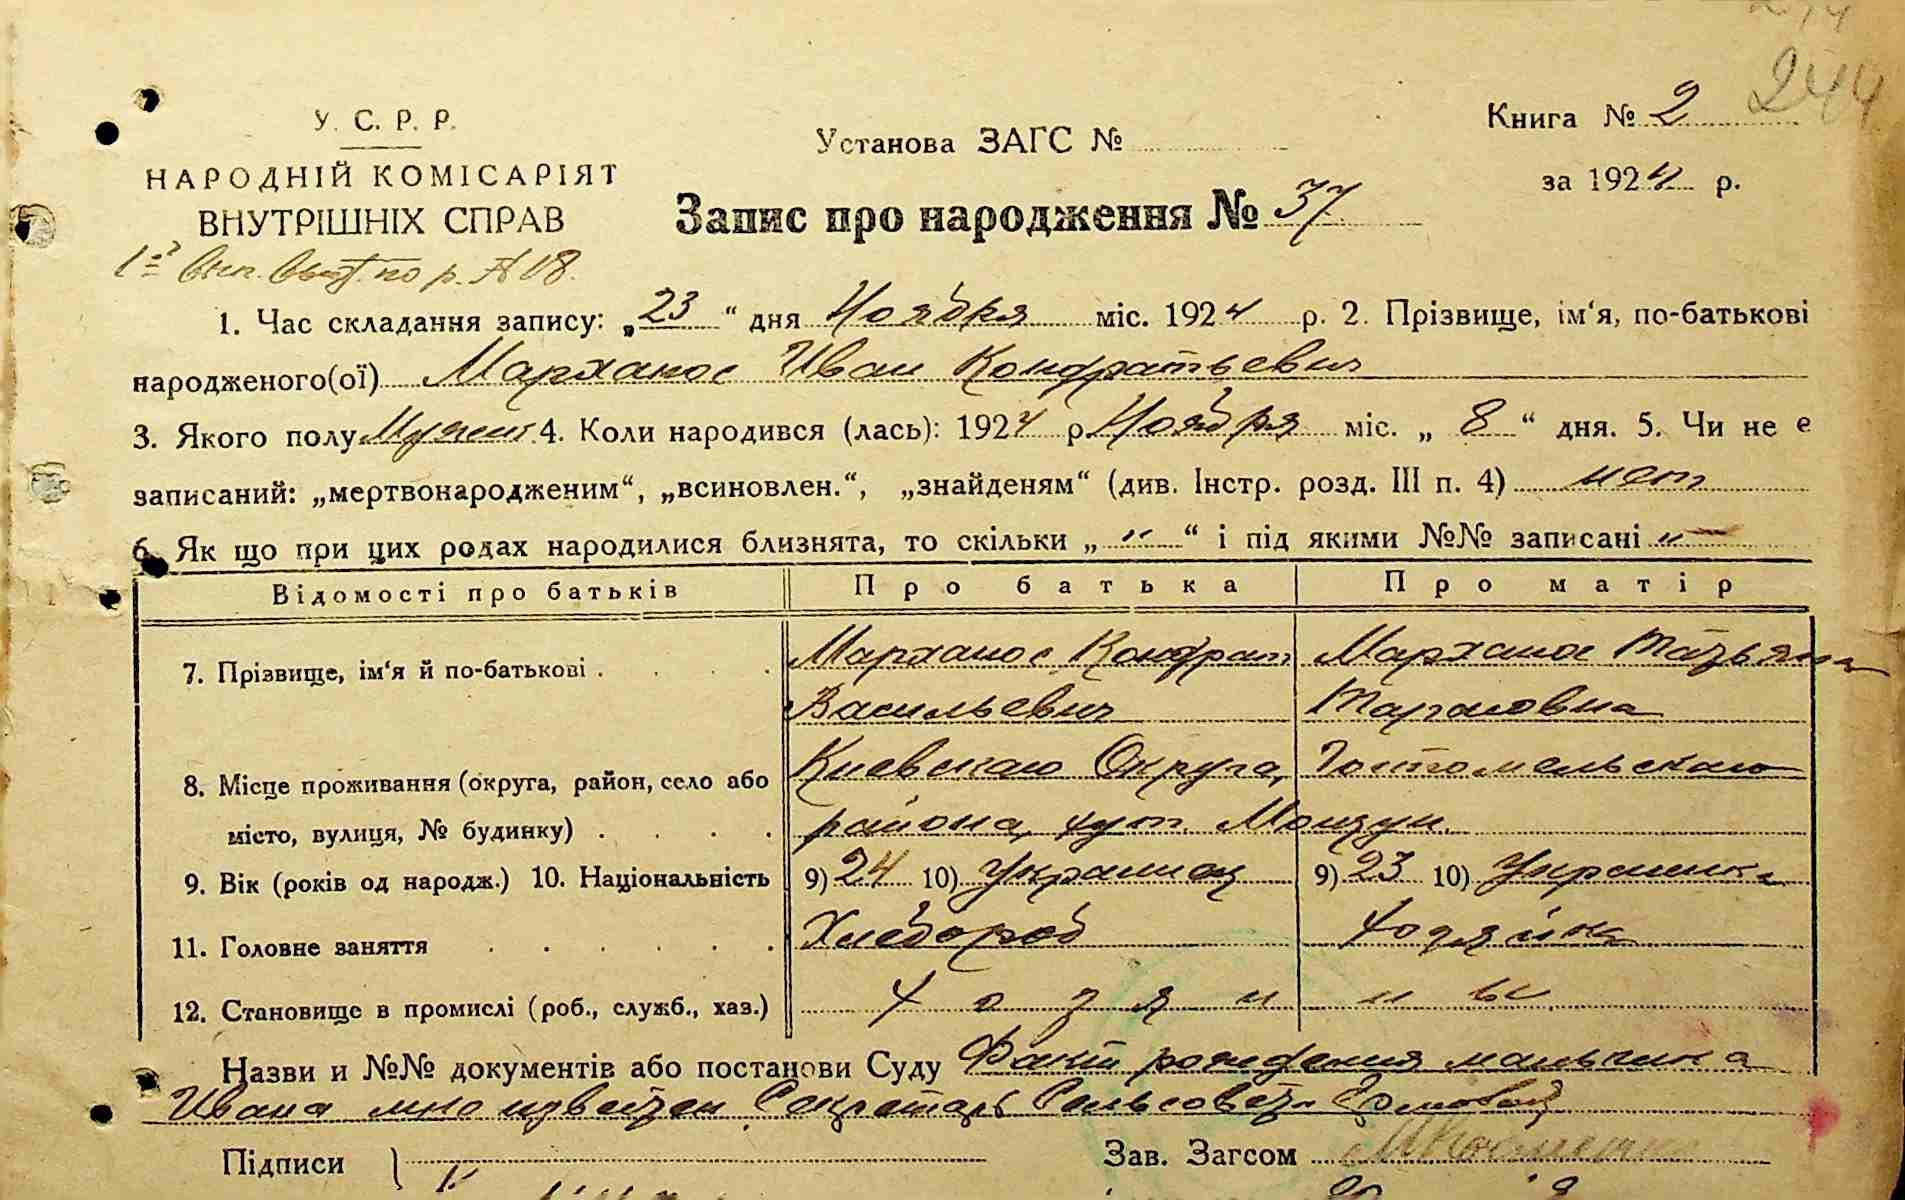 244
У. С. Р. Р.
НАРОДНІЙ КОМІСАРІЯТ
ВНУТРІШНІХ СПРАВ
Установа ЗАГС №
Книга № 2
за 1924 р.
Запис про народження № 37
1. Час складання запису: „23“ дня Ноября міс. 1924 р. 2. Прізвище, ім‘я, по-батькові
народженого(ої) Марханос Иван Кондратьевич
3. Якого полу Мужск. 4. Коли народився (лась): 1924 р. Ноября міс. „8“ дня. 5. Чи не є
записаний: „мертвонародженим“, „всиновлен.“, „знайденям“ (див. Інстр. розд. III п. 4) нет
6. Як що при цих родах народилися близнята, то скільки „ " “ і під якими №№ записані "
Відомості про батьків Про батька Про матір
7. Прізвище, ім‘я й по-батькові . . . . Марханос Кондрат Марханос Татьяна
Васильевич Тарасовна
8. Місце проживання (округа, район, село або Киевскаго Округа, Гостомельскаго
місто, вулиця, № будинку) . . . . района, хут.
9. Вік (років од народж.) 10. Національність 9) 24 10) Украинец 9) 23 10) Украинка
11. Головне заняття . . . . . . Хлебороб Хозяйка
12. Становище в промислі (роб., служб., хаз.) Хозяины
Назви и №№ документів або постанови Суду Факт рождения мальчика
Ивана мне известен Секретарь Сельсовета
Підписи
Зав. Загсом